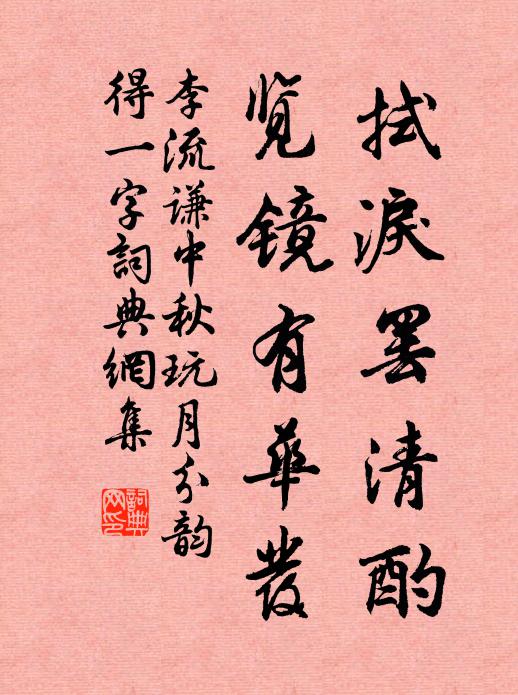 拭淚罢清酌
览镜有華发
李流谦中秋玩月分韵
得一字詞典網集
詞典網印